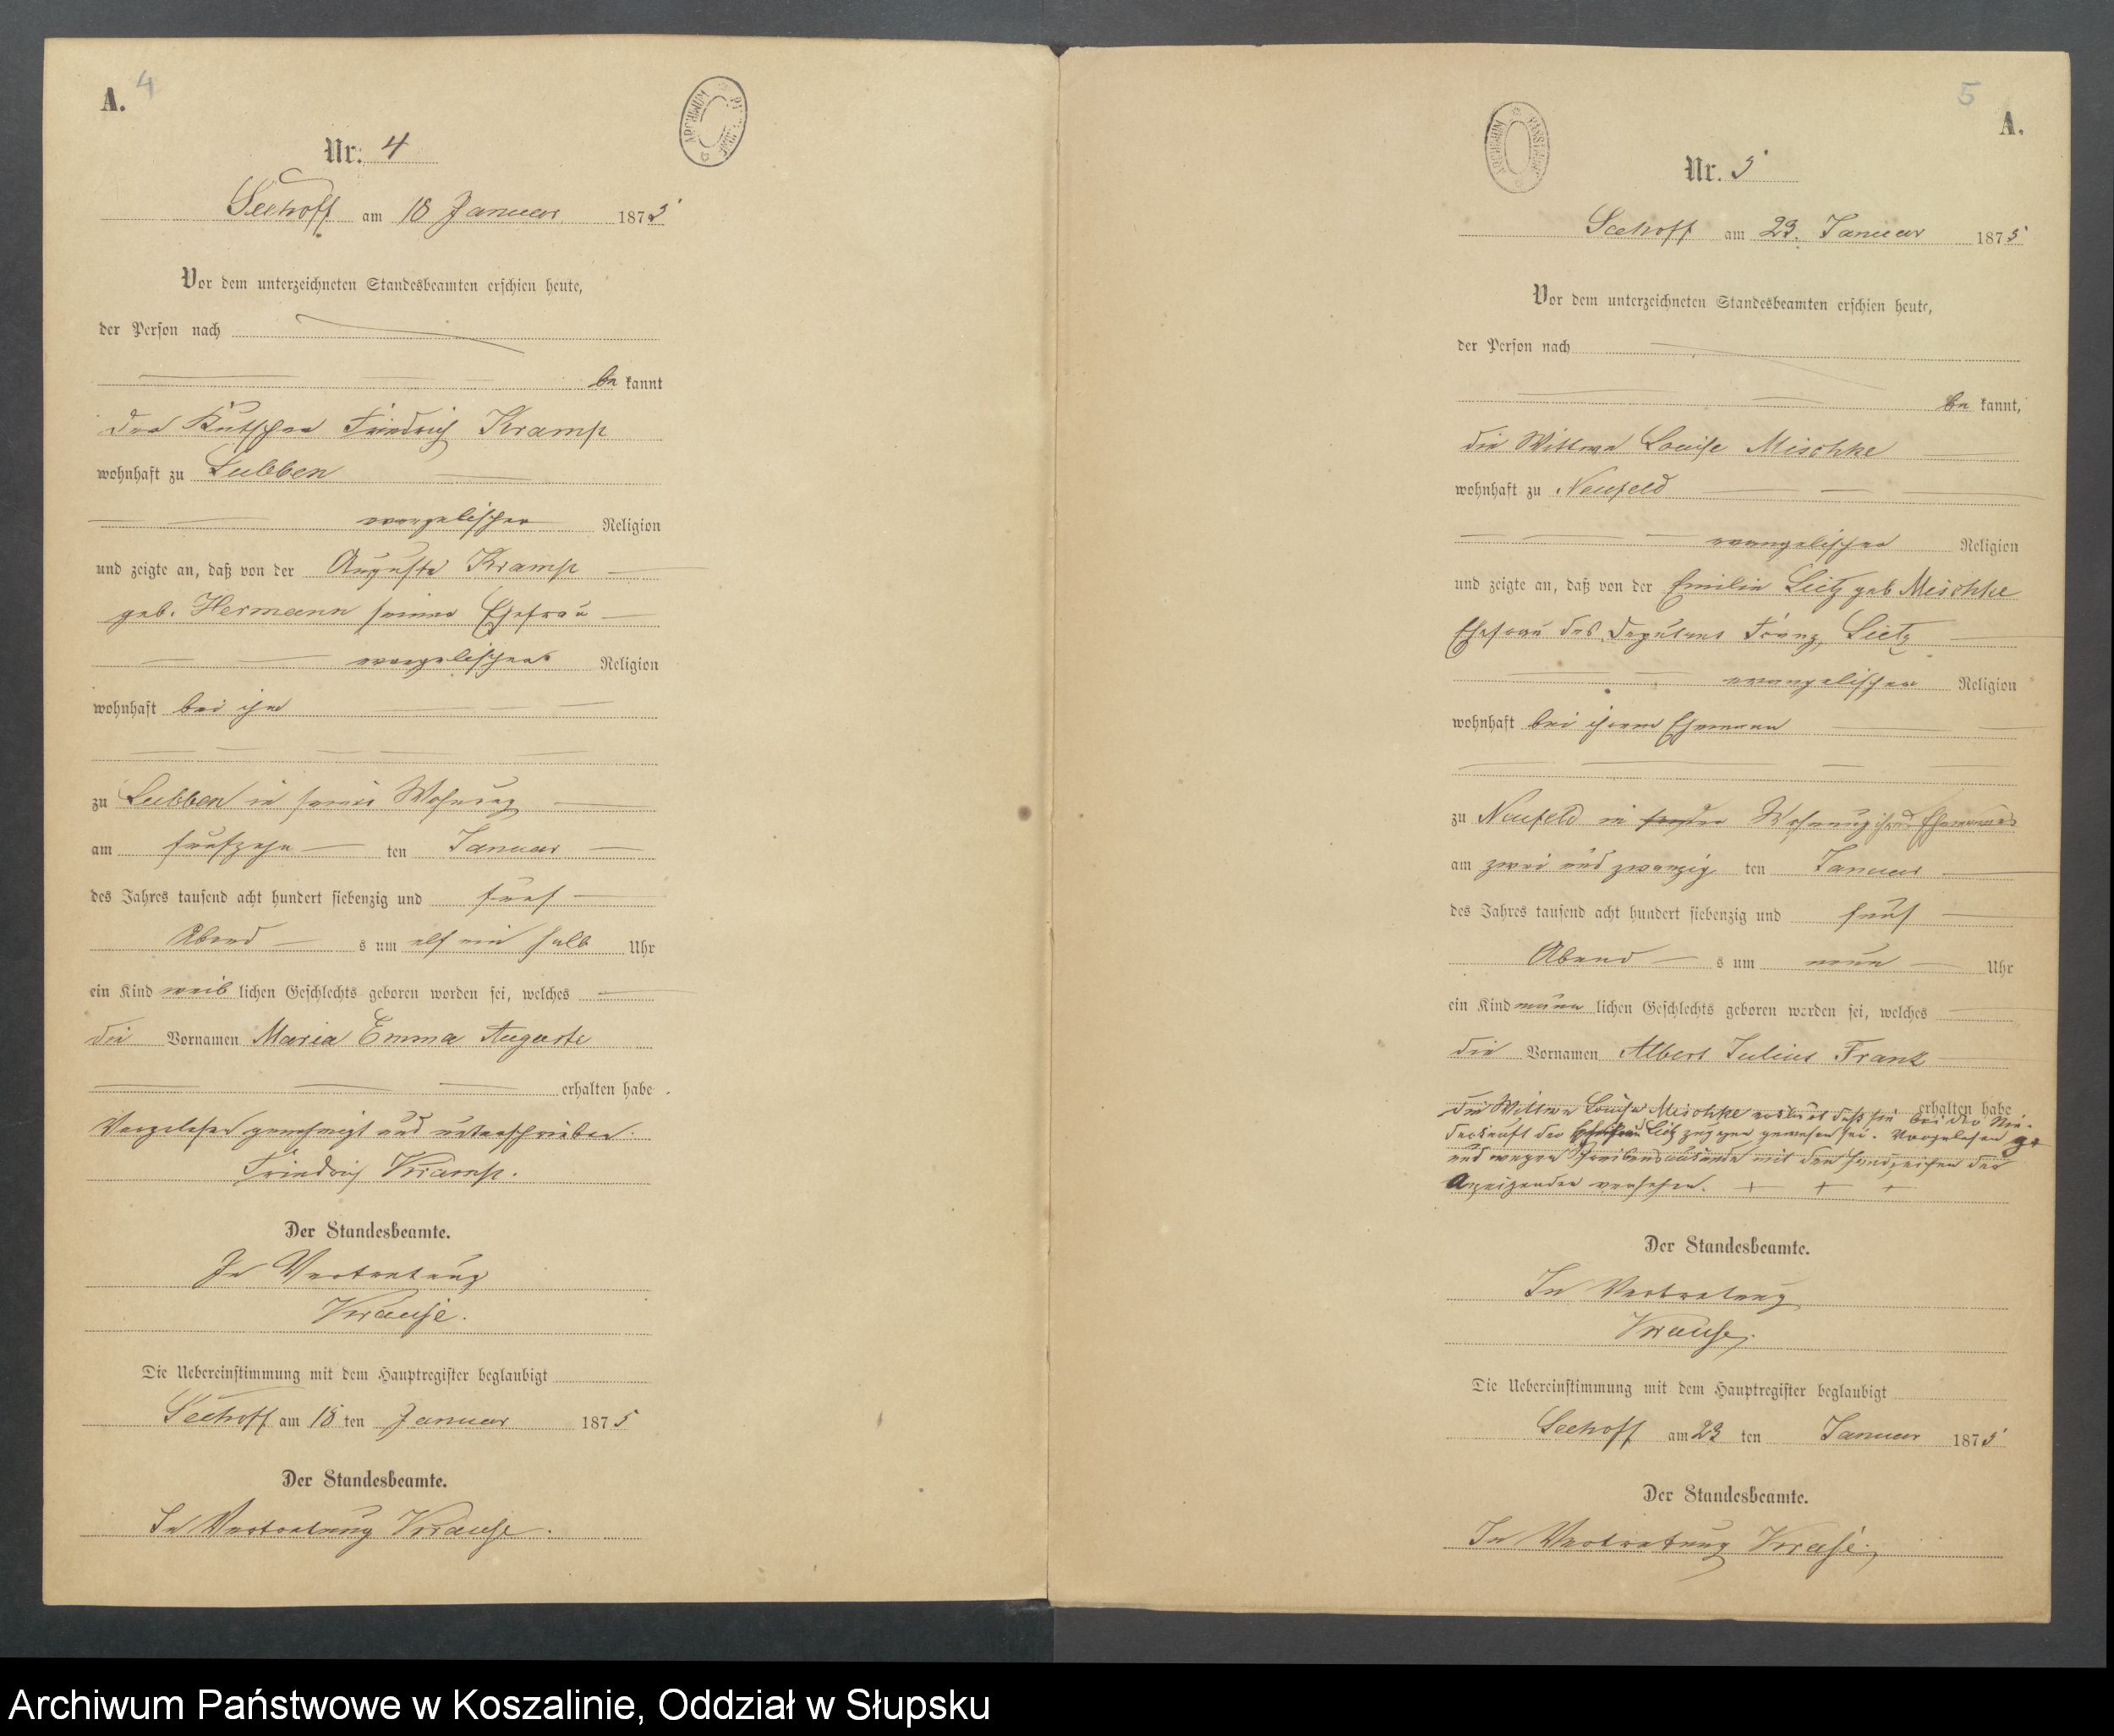 A. 4
ARCHIWUM
Nr. 4
Seehoff am 18 Januar 1875
Vor dem unterzeichneten Standesbeamten erschien heute,
der Person nach
be kannt
der Kutscher Friedrich Kramp
wohnhaft zu Lubben
evangelischer Religion
und zeigte an, daß von der Auguste Kramp
geb. Hermann seiner Ehefrau
evangelischer Religion
wohnhaft bei ihm
zu Lubben in seiner Wohnung
am fünfzehn ten Januar
des Jahres tausend acht hundert siebenzig und fünf
Abend s um elf ein halb Uhr
ein Kind weib lichen Geschlechts geboren worden sei, welches
die Vornamen Maria Emma Auguste
erhalten habe.
Vorgelesen genehmigt und unterschrieben.
Friedrich Kramp.
Der Standesbeamte.
In Vertretung
Krause.
Die Uebereinstimmung mit dem Hauptregister beglaubigt
Seehoff am 18 ten Januar 1875
Der Standesbeamte.
In Vertretung Krause.
5
A.
ARCHIWUM PAŃSTWOWE
Nr. 5
Seehoff am 23. Januar 1875
Vor dem unterzeichneten Standesbeamten erschien heute,
der Person nach
be kannt,
die Wittwe Louise Mischke
wohnhaft zu Neufeld
evangelischer Religion
und zeigte an, daß von der Emilie Lietz geb Mischke
Ehefrau des Deputant Franz Lietz
evangelischer Religion
wohnhaft bei ihrem Ehemann
zu Neufeld in der Wohnung ihres Ehemannes
am zwei und zwanzig ten Januar
des Jahres tausend acht hundert siebenzig und fünf
Abend s um neun Uhr
ein Kind männ lichen Geschlechts geboren worden sei, welches
die Vornamen Albert Julius Frank
erhalten habe
die Wittwe Louise Mischke erklärt daß sie bei der Nie-
derkunft der Ehefrau Lietz zugegen gewesen sei. Vorgelesen ge
und wegen Schreibensunkunde mit den Handzeichen der
Anzeigenden versehen. + + +
Der Standesbeamte.
In Vertretung
Krause.
Die Uebereinstimmung mit dem Hauptregister beglaubigt
Seehoff am 23 ten Januar 1875
Der Standesbeamte.
In Vertretung Krause.
Archiwum Państwowe w Koszalinie, Oddział w Słupsku